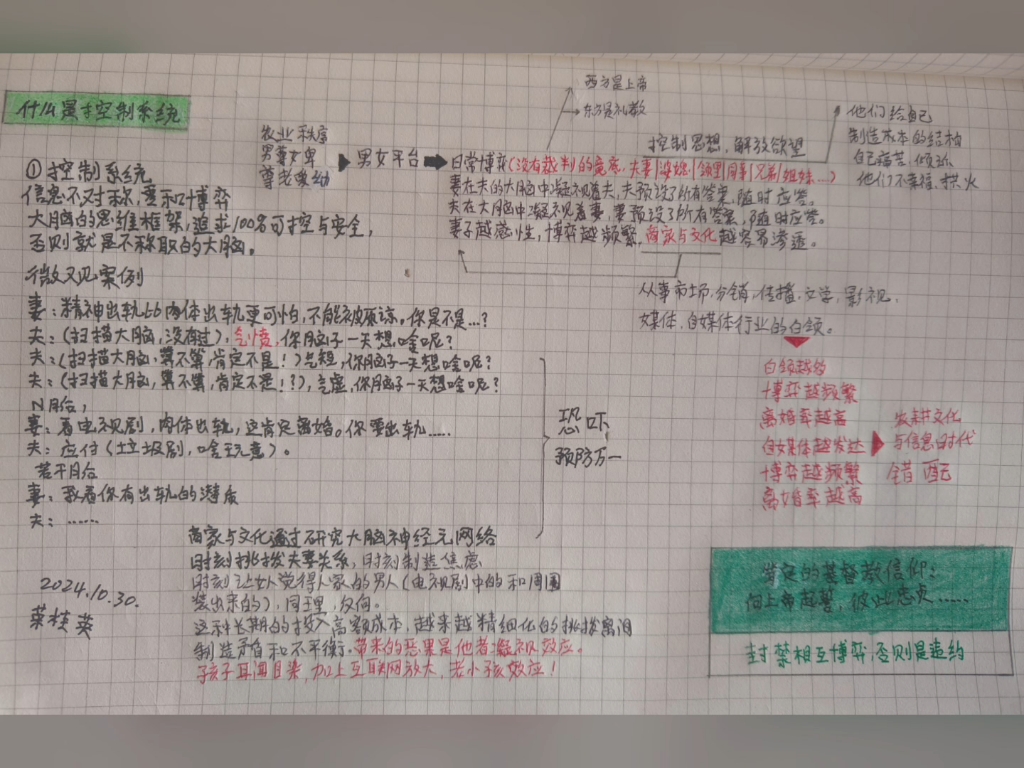 什么是控制系统
西方是上帝
东方是礼教
农业秩序
男尊女卑
尊老爱幼
男女平台
控制思想，解放欲望
他们给自己
制造成本的结构
自己痛苦，倾诉
他们不幸福，拱火
日常博弈(没有裁判的竞底，夫妻|婆媳|邻里|同事|兄弟|姐妹…)
妻在夫的大脑中凝视着夫，夫预设了所有答案，随时应答。
夫在大脑中凝视着妻，妻预设了所有答案，随时应答。
妻子越感性，博弈越频繁，商家与文化越容易渗透。
①控制系统
信息不对称，委和叶博弈
大脑的思维框架，追求100%可控与安全，
否则就是不称职的大脑。
微观案例
妻：精神出轨比肉体出轨更可怕，不能被原谅。你是不是…?
夫：(扫描大脑，没有过)，气愤，你脑子一天想啥呢？
夫：(扫描大脑，算不算，肯定不是！)气短，你脑子一天想啥呢？
夫：(扫描大脑，算不算，肯定不是！?)，气虚，你脑子一天想啥呢？
N月后，
妻：看电视剧，肉体出轨，这肯定离婚。你要出轨……
夫：应付(垃圾剧，啥玩意)。
若干月后
妻：我看你有出轨的潜质
夫：……
恐吓，
预防万一
从事市场，分销，传播，文学，影视，
媒体，自媒体行业的白领。
白领越约
博弈越频繁
离婚率越高
自媒体越发达
博弈越频繁
离婚率越高
农耕文化
与信息时代
错配
商家与文化通过研究大脑神经元网络
时刻挑拨夫妻关系，时刻制造焦虑
时刻让妳觉得人家的男人(电视剧中的和周围
装出来的)，同理，反向。
这种长期的投入高额成本，越来越精细化的挑拨离间
制造矛盾和不平衡，带来的恶果是他者凝视效应。
孩子耳濡目染，加上互联网放大，老小孩效应！
2024.10.30.
肯定的基督教信仰：
向上帝起誓，彼此忠贞……
封禁相互博弈，否则是违约